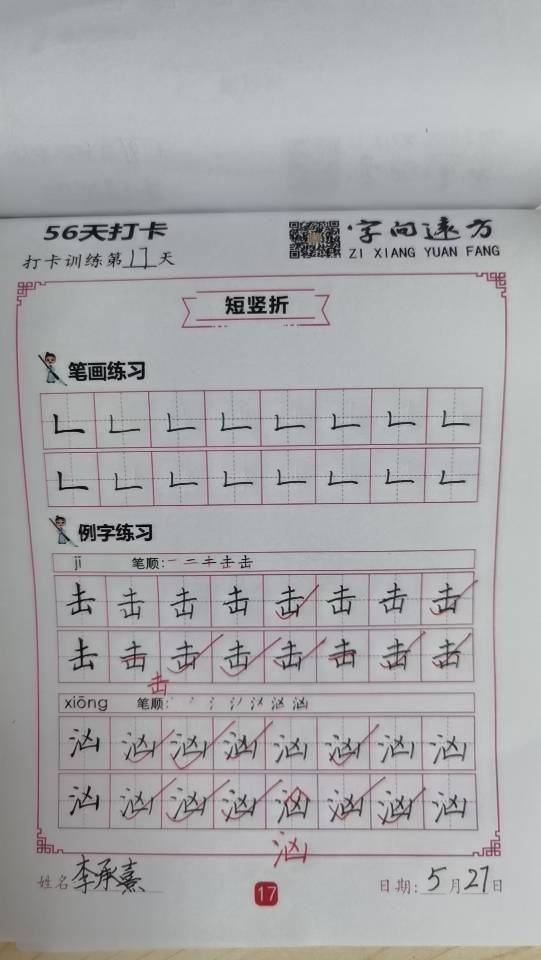 56天打卡 ·字向远方
打卡训练第17天 ZI XIANG YUAN FANG
短竖折
笔画练习
例字练习
jī 笔顺:一 二 キ 击 击
击 击 击 击 击 击 击 击
击 击 击 击 击 击 击 击
击
xiōng 笔顺:丶 冫 氵 汹 汹
汹 汹 汹 汹 汹 汹 汹 汹
汹 汹 汹 汹 汹 汹 汹 汹
汹
姓名 李承熹 17 日期: 5月27日